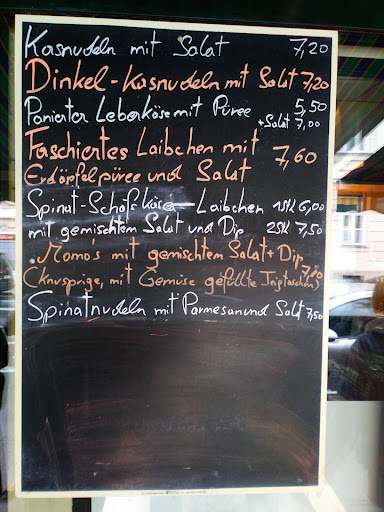 Kasnudeln mit Salat 7,20
Dinkel-Kasnudeln mit Salat 7,20
Panierter Leberkäse mit Püree 5,50
+Salat 7,00
Faschiertes Laibchen mit 7,60
Erdäpfelpüree und Salat
Spinat-Schafskäse-Laibchen 1Stk 6,00
mit gemischtem Salat und Dip 2Stk 7,50
Momo's mit gemischtem Salat + Dip
(knusprige, mit Gemüse gefüllte Teigtaschen) 7,20
Spinatnudeln mit Parmesan und Salat 7,50